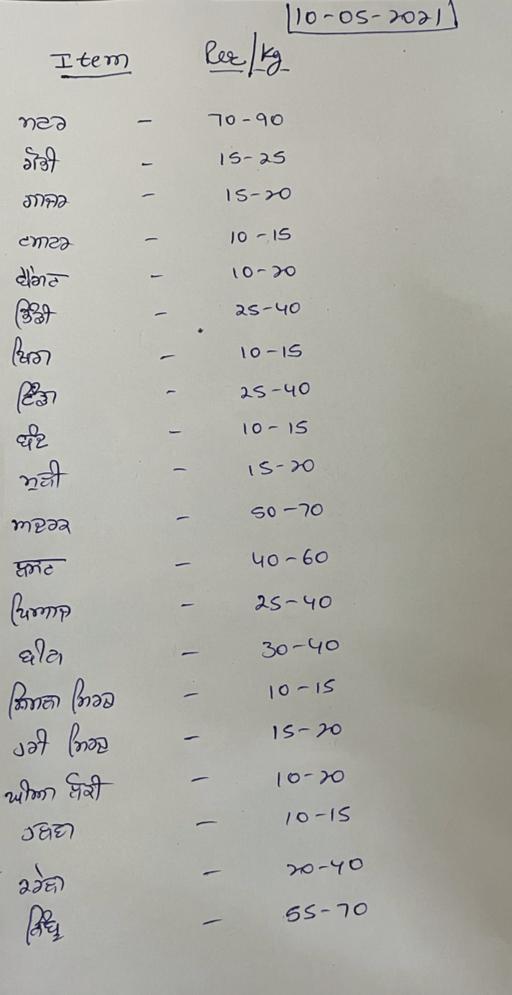 10-05-2021
Item Per/Kg
ਮਟਰ - 70-90
ਗੋਭੀ - 15-25
ਗਾਜਰ - 15-20
ਟਮਾਟਰ - 10-15
ਬੈਂਗਣ - 10-20
ਭਿੰਡੀ - 25-40
ਖਿਰਾ - 10-15
ਟਿੰਡਾ - 25-40
ਬੰਦ - 10-15
ਮੂਲੀ - 15-20
ਅਦਰਕ - 50-70
ਲਸਣ - 40-60
ਪਿਆਜ - 25-40
ਬੀਨਾ - 30-40
ਸ਼ਿਮਲਾ ਮਿਰਚ - 10-15
ਹਰੀ ਮਿਰਚ - 15-20
ਘੀਆ ਲੋਕੀ - 10-20
ਹਲਵਾ - 10-15
ਕਰੇਲਾ - 20-40
ਨਿੰਬੂ - 55-70